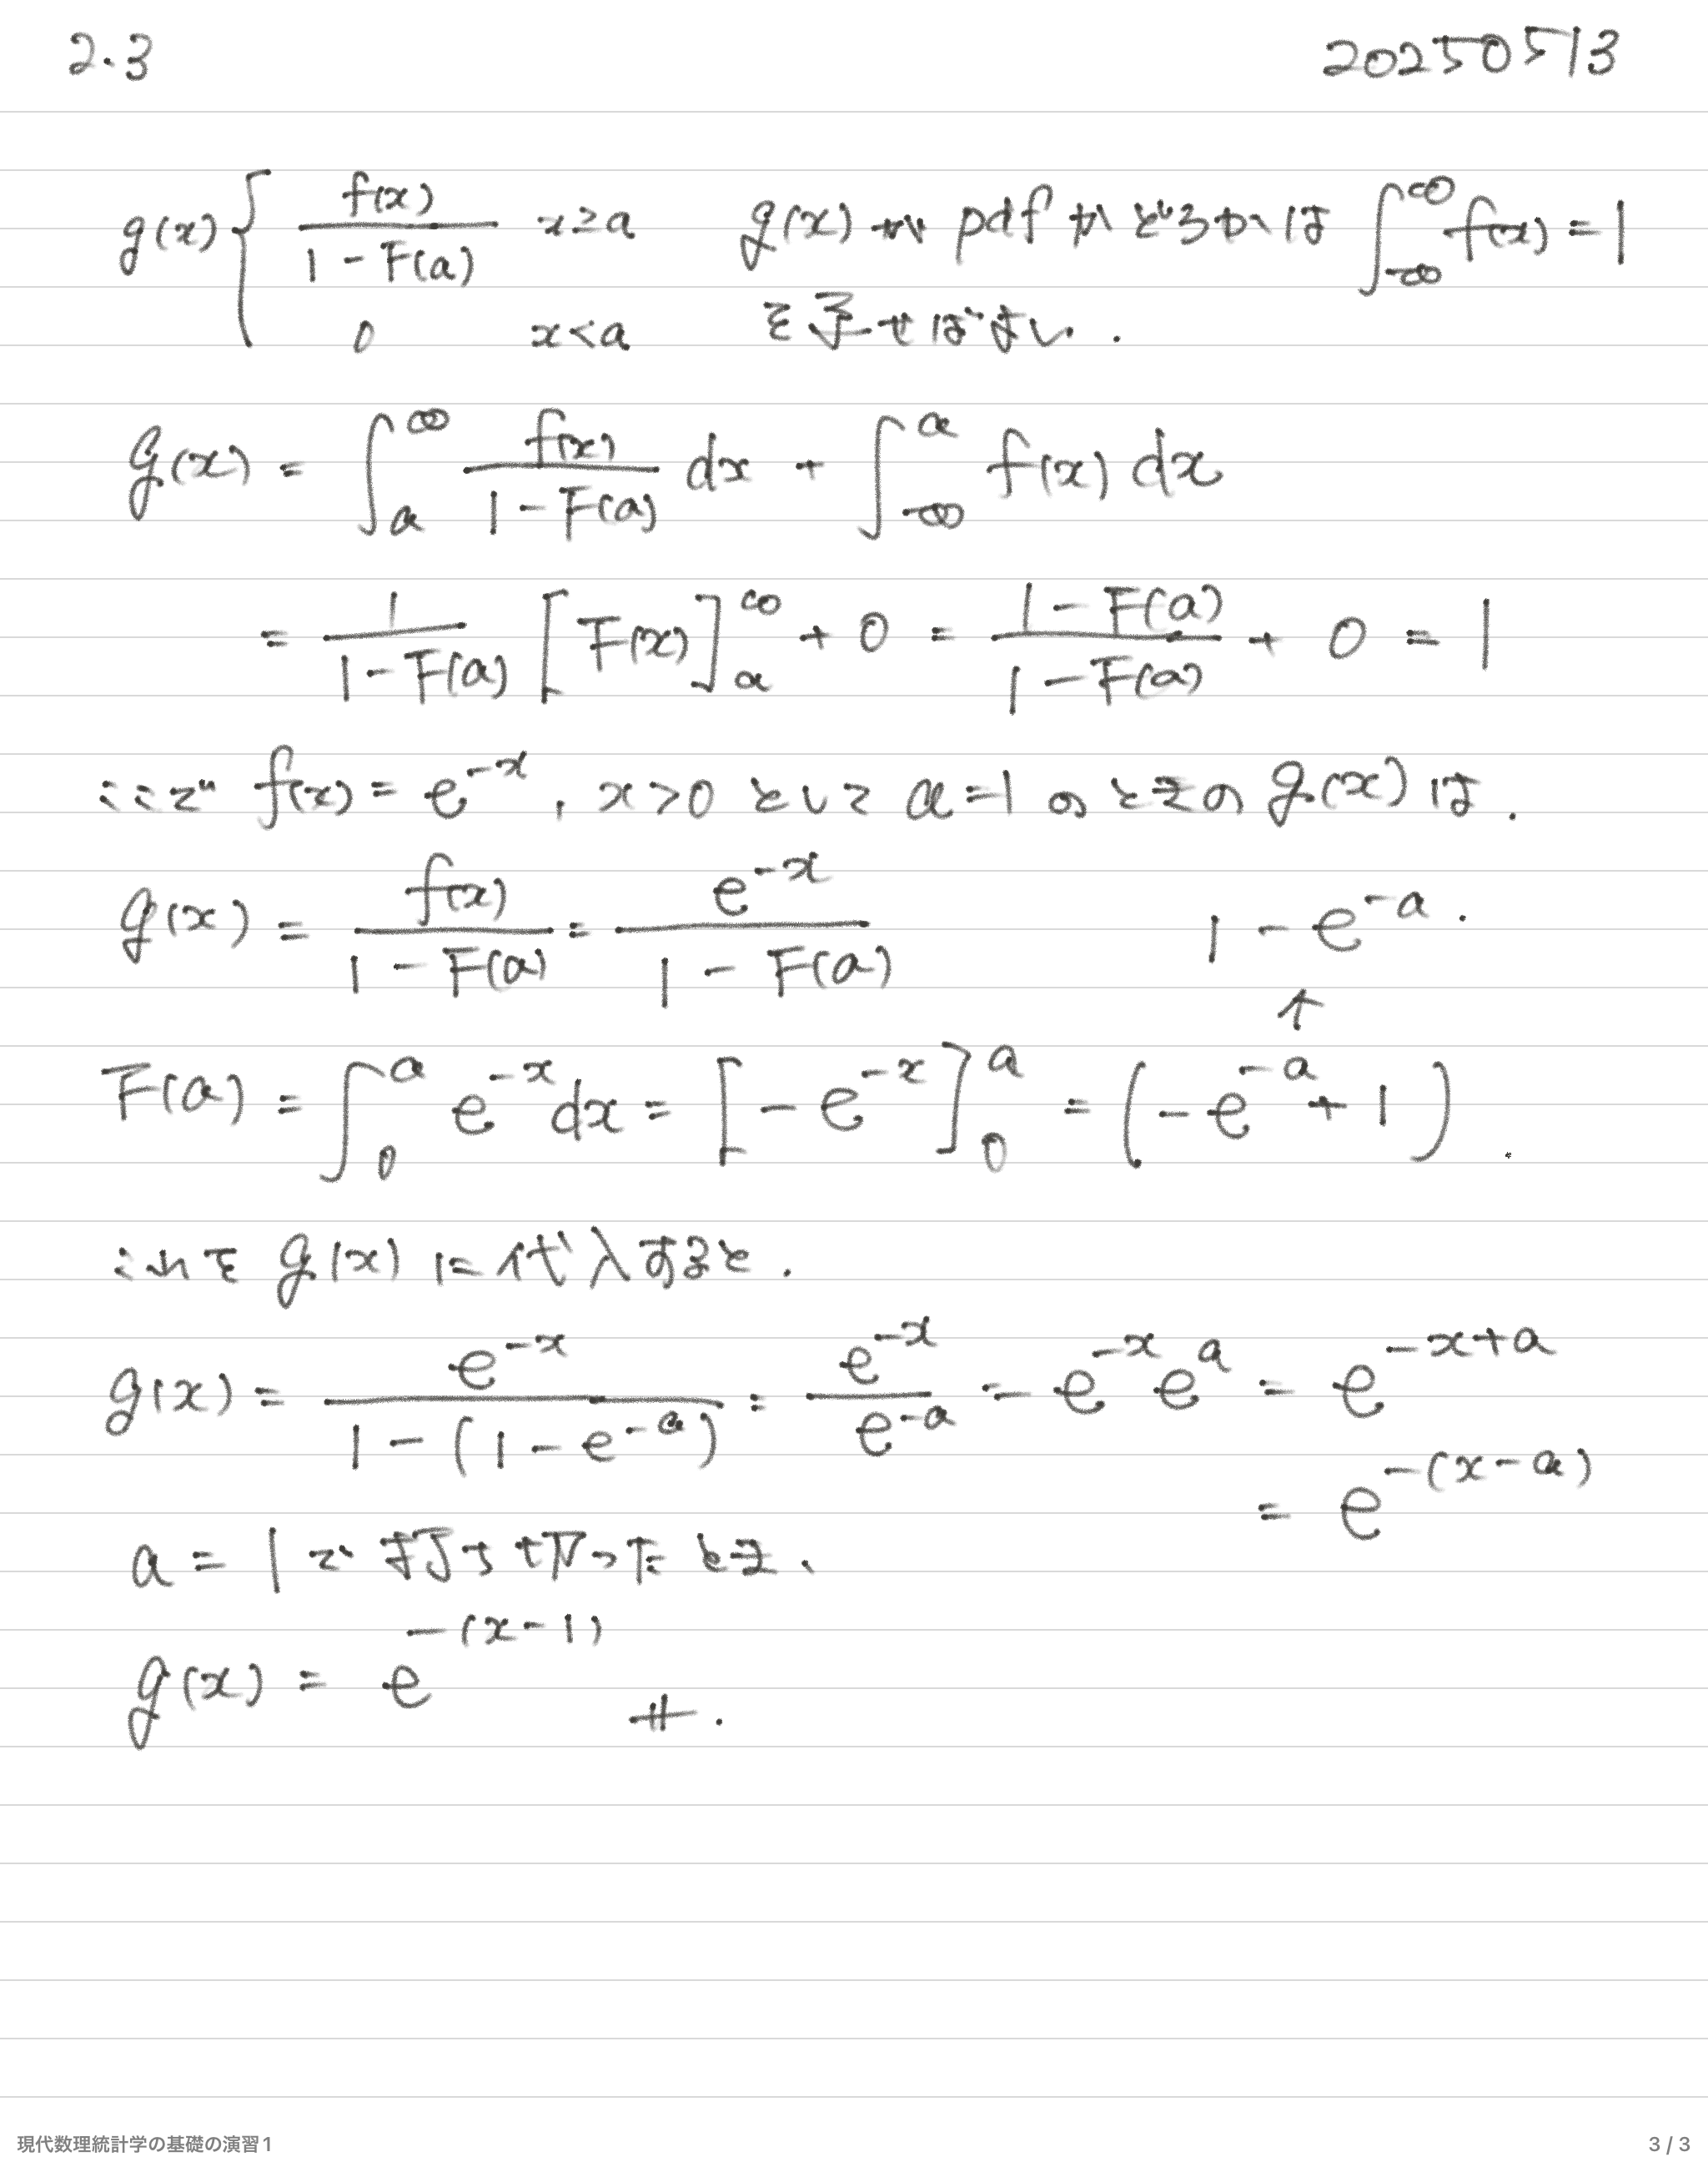 2.3 20250513
g(x) { f(x) / (1 - F(a)) x ≥ a g(x) が pdf かどうかは ∫_{-∞}^{∞} f(x) = 1
0 x < a を示せばよい.
g(x) = ∫_a^∞ f(x) / (1 - F(a)) dx + ∫_{-∞}^a f(x) dx
= 1 / (1 - F(a)) [F(x)]_a^∞ + 0 = (1 - F(a)) / (1 - F(a)) + 0 = 1
ここで f(x) = e^{-x}, x > 0 として a = 1 のときの g(x) は.
g(x) = f(x) / (1 - F(a)) = e^{-x} / (1 - F(a)) 1 - e^{-a}.
↑
F(a) = ∫_0^a e^{-x} dx = [-e^{-x}]_0^a = (-e^{-a} + 1).
これを g(x) に代入すると.
g(x) = e^{-x} / (1 - (1 - e^{-a})) = e^{-x} / e^{-a} = e^{-x} e^a = e^{-x+a}
= e^{-(x-a)}
a = 1 で打ち切ったとき、
g(x) = e^{-(x-1)} #.
現代数理統計学の基礎の演習1 3 / 3